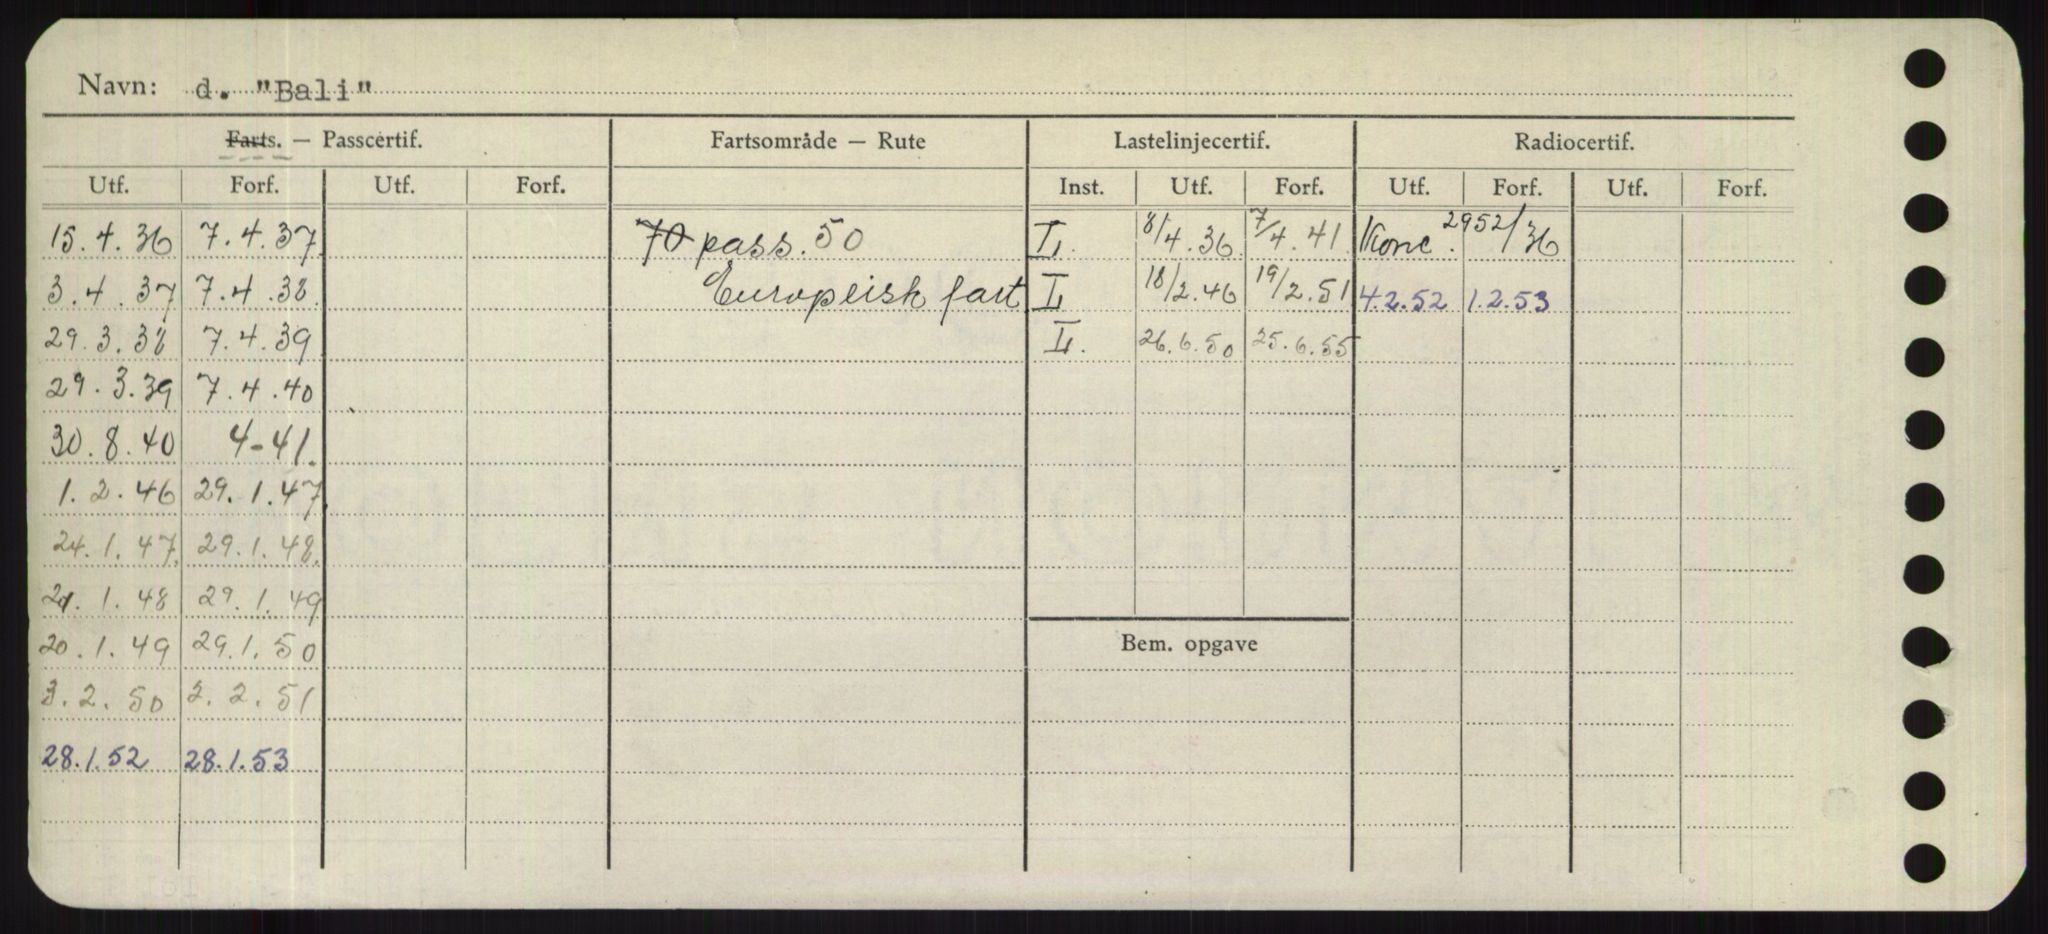 Navn: d. "Bali"
Farts. — Passcertif. Fartsområde — Rute Lastelinjecertif. Radiocertif.
Utf. Forf. Utf. Forf. Inst. Utf. Forf. Utf. Forf. Utf. Forf.
15.4.36 7.4.37 70 pass. 50 I. 8/4.36 7/4.41 Konc. 2952/36
3.4.37 7.4.38. Europeisk fart I 18/2.46 19/2.51 4.2.52 1.2.53
29.3.38 7.4.39 I. 26.6.50 25.6.55
29.3.39 7.4.40
30.8.40 4-41.
1.2.46 29.1.47
24.1.47. 29.1.48.
21.1.48 29.1.49
20.1.49 29.1.50
Bem. opgave
3.2.50 2.2.51
28.1.52 28.1.53